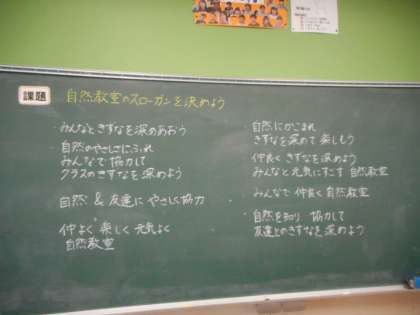 課題
自然教室のスローガンを決めよう
・みんなときずなを深めあおう
・自然のやさしさにふれ
みんなで協力して
クラスのきずなを深めよう
・自然 & 友達に やさしく協力
・仲よく 楽しく 元気よく
自然教室
・自然にかこまれ
きずなを深めて 楽しもう
・仲良く きずなを深めよう
みんなと元気にすごす 自然教室
・みんなで 仲良く 自然教室
・自然を知り 協力して
友達とのきずなを深めよう